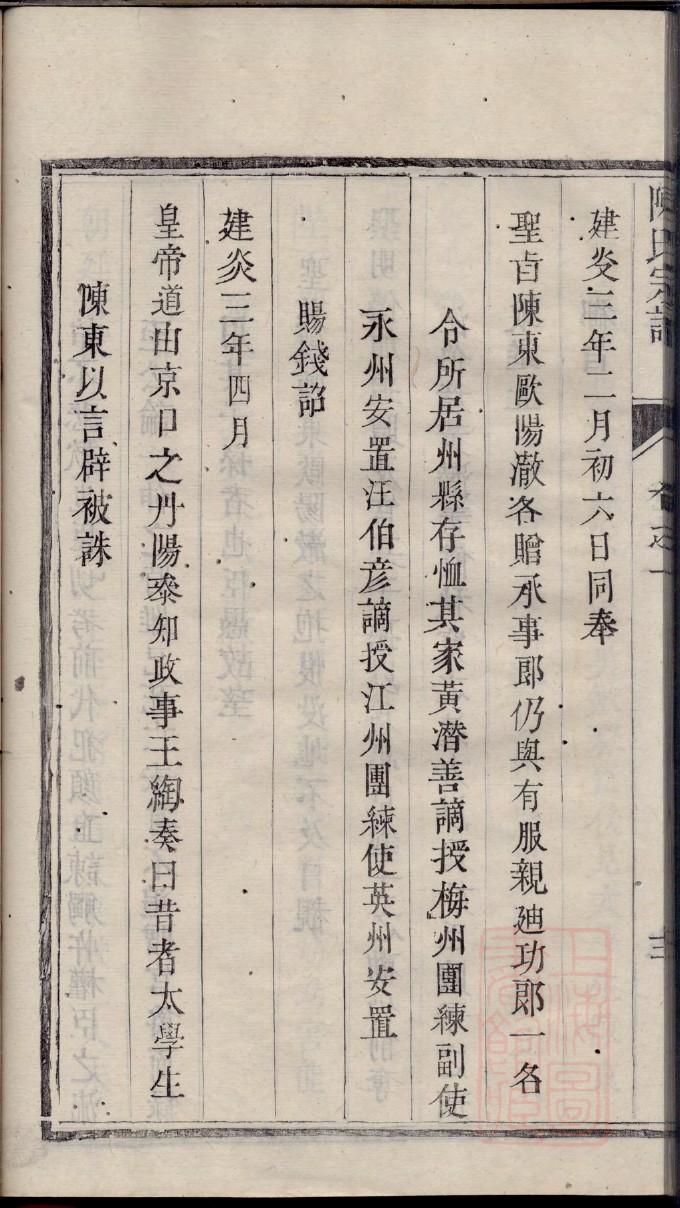 陳氏宗譜
卷之一
建炎三年二月初六日同奉
聖旨陳東歐陽澈各贈承事郎仍與有服親廸功郎一名
令所居州縣存恤其家黃潛善謫授梅州團練副使
永州安置汪伯彥謫授江州團練使英州安置
賜錢詔
建炎三年四月
皇帝道由京口之丹陽叅知政事王綯奏曰昔者太學生
陳東以言辟被誅